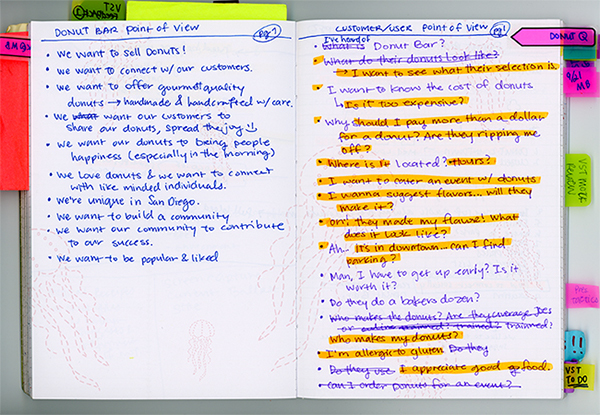 T2V
DONUT BAR POINT OF VIEW
pg. 1
• We want to sell Donuts!
• We want to connect w/our customers.
• We want to offer gourmet quality
donuts → handmade & handcrafted w/care.
• We want our customers to
share our donuts, spread the joy
• We want our donuts to bring people
happiness (especially in the morning)
• We Love donuts & we want to connect
with like minded individuals.
• We're unique in San Diego.
• We want to build a community
• We want our community to contribute
to our success.
• We want to be popular & liked
CUSTOMER/USER POINT OF VIEW
pg. 1
DONUT Q
I've heard of
• What is Donut Bar?
• What do their donuts look like?
→ I want to see what their selection is.
• I want to know the cost of donuts
↳ Is it too expensive?
• Why should I pay more than a dollar
for a donut? Are they ripping me
off?
• Where is it located? Hours?
• I want to cater an event w/ donuts
• I wanna suggest flavors... will they
make it?
• OH! they made my flavor! What
does it look like?
• Ah.. It's in downtown... can I find
parking?
• Man, I have to get up early? Is it
worth it?
• Do they do a bakers dozen?
• Who makes the donuts? Are they average Joes
or trained? trainned?
Who makes my donuts?
• I'm allergic to gluten Do they
• Do they use I appreciate good food.
• Can I order Donuts for an event?
VST
TO DO